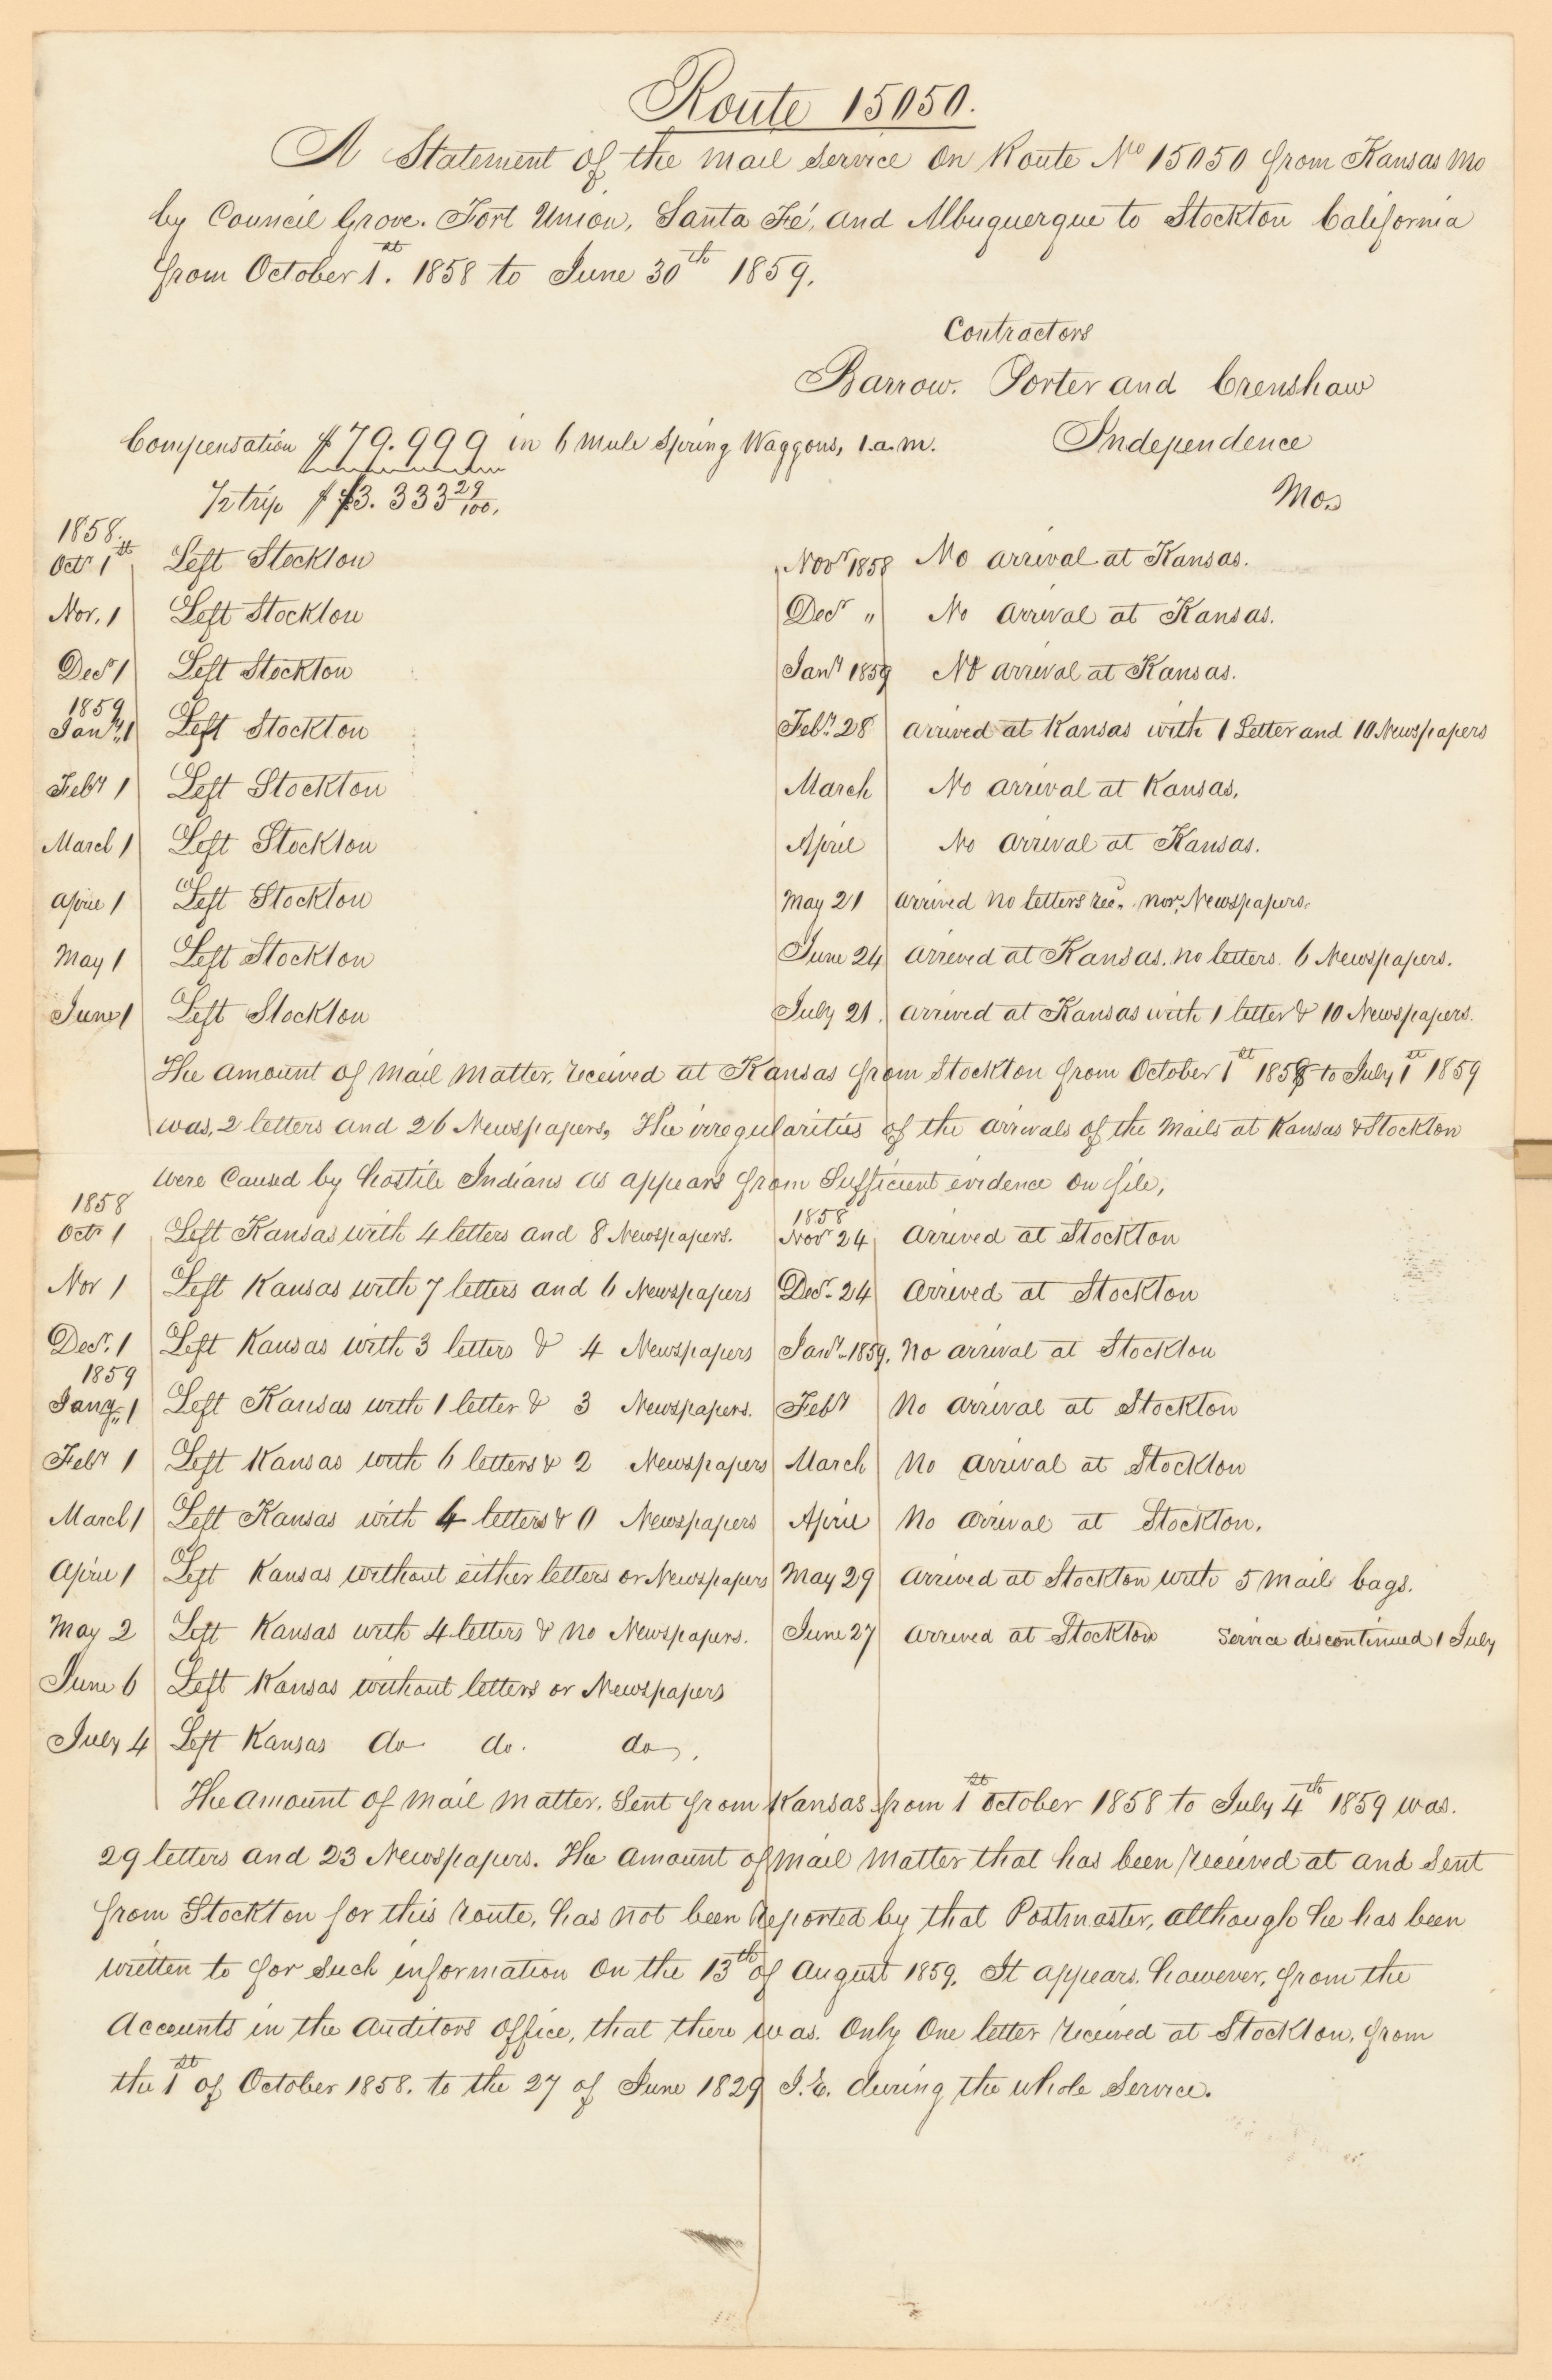 Route 15050.
A Statement of the mail service on Route No 15050 from Kansas Mo
by Council Grove. Fort Union, Santa Fé, and Albuquerque to Stockton California
from October 1st. 1858 to June 30th 1859.
Contractors
Barrow. Porter and Crenshaw
Compensation $79.999 in 6 mule Spring Waggons, 1.a.m. Independence
1/2 trip $ 3. 333 29/100. Mo.
1858.
Octr 1st Left Stockton Novr 1858 No arrival at Kansas.
Nov. 1 Left Stockton Decr " No arrival at Kansas.
Decr 1 Left Stockton Jany 1859 No arrival at Kansas.
1859
Jany. 1 Left Stockton Feby. 28 arrived at Kansas with 1 Letter and 10 Newspapers
Feby 1 Left Stockton March No arrival at Kansas.
March 1 Left Stockton April No arrival at Kansas.
April 1 Left Stockton May 21 arrived no letters rec. nor. Newspapers.
May 1 Left Stockton June 24 arrived at Kansas. no letters. 6 Newspapers.
June 1 Left Stockton July 21. arrived at Kansas with 1 letter & 10 Newspapers.
The amount of mail matter, received at Kansas from Stockton from October 1st 1858 to July 1st 1859
was, 2 letters and 26 Newspapers, The irregularities of the arrivals of the Mails at Kansas & Stockton
were caused by hostile Indians as appears from Sufficient evidence on file,
1858 1858
Octr 1 Left Kansas with 4 letters and 8 Newspapers. Novr 24 arrived at Stockton
Nov 1 Left Kansas with 7 letters and 6 Newspapers Decr. 24 arrived at Stockton
Decr. 1 Left Kansas with 3 letters & 4 Newspapers Jany. 1859. No arrival at Stockton
1859
Jany. 1 Left Kansas with 1 letter & 3 Newspapers. Feby No arrival at Stockton
Feby 1 Left Kansas with 6 letters & 2 Newspapers March No arrival at Stockton
March 1 Left Kansas with 4 letters & 0 Newspapers April No arrival at Stockton.
April 1 Left Kansas without either letters or Newspapers May 29 arrived at Stockton with 5 mail bags.
May 2 Left Kansas with 4 letters & no Newspapers. June 27 arrived at Stockton Service discontinued 1 July
June 6 Left Kansas without letters or Newspapers
July 4 Left Kansas do do. do.
The amount of mail matter. Sent from Kansas from 1st October 1858 to July 4th 1859 was.
29 letters and 23 Newspapers. The amount of mail matter that has been received at and Sent
from Stockton for this route, has not been reported by that Postmaster, although he has been
written to for such information on the 13th of August 1859. It appears. however, from the
Accounts in the Auditors office, that there was. only one letter received at Stockton, from
the 1st of October 1858. to the 27 of June 1829 I.E. during the whole Service.